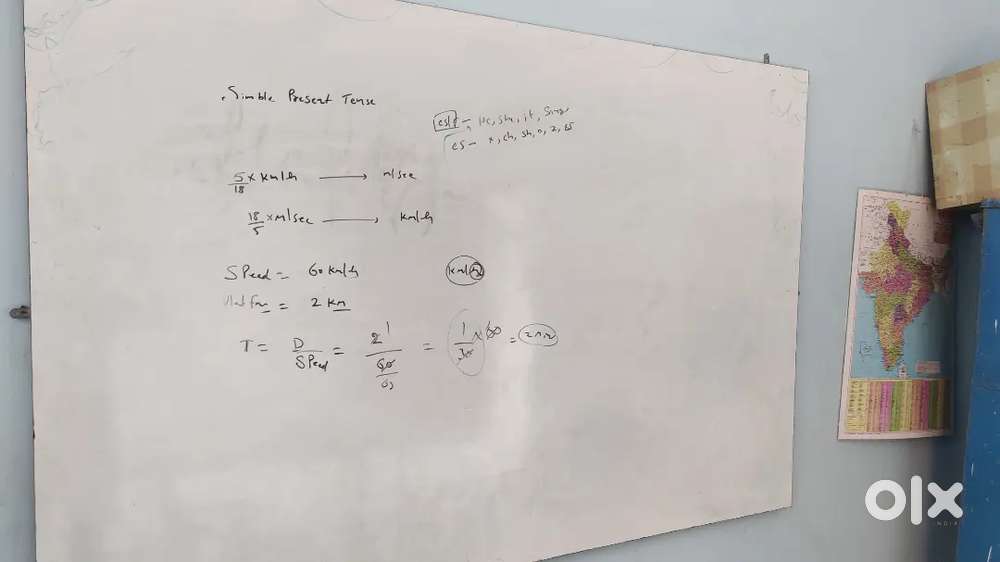 Simble Present Tense
es/s - He, she, it, Sing,
es - x, ch, sh, o, z, ss
5/18 × km/h → m/sec
18/5 × m/sec → km/h
Speed = 60 km/h km/h
= 2 km
T = D/Speed = 2 1/60 = 1/30 × 60 = 2 min
olx
INDIA